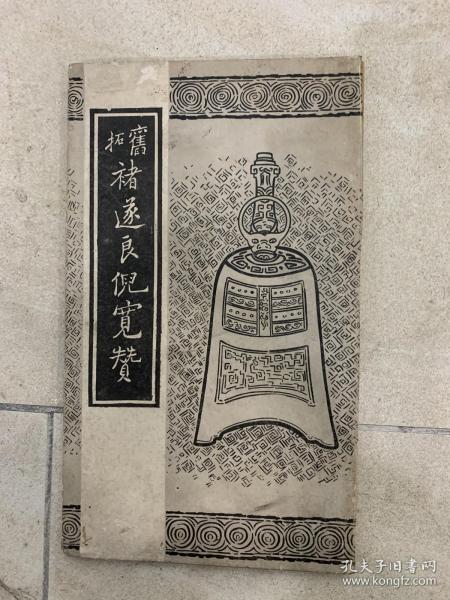 舊拓
褚遂良倪寬贊
孔夫子旧书网
www.kongfz.com